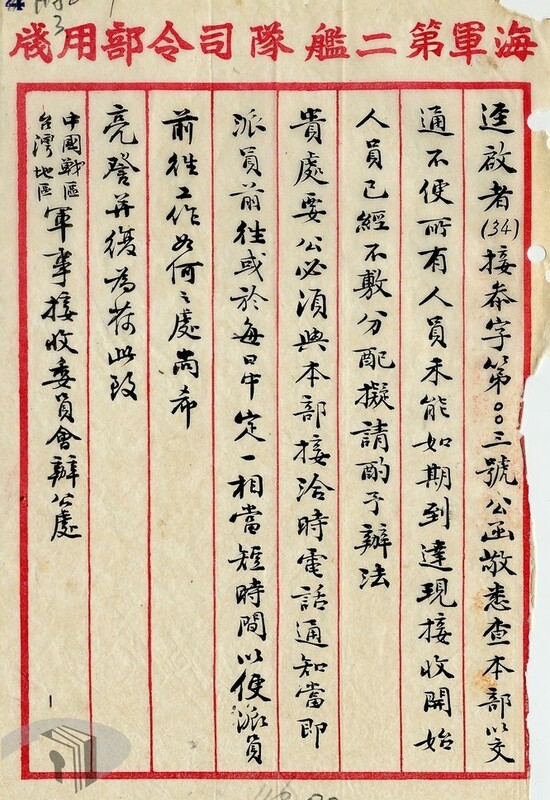 海軍第二艦隊司令部用牋
逕啟者(34)接參字第〇〇三號公函敬悉查本部以交
通不便所有人員未能如期到達現接收開始
人員已經不敷分配擬請酌予辦法
貴處要公必須與本部接洽時電話通知當即
派員前往或於每日中定一相當短時間以便派員
前往工作如何之處尚希
亮詧并復為荷此致
中國戰區
台灣地區
軍事接收委員會辦公處